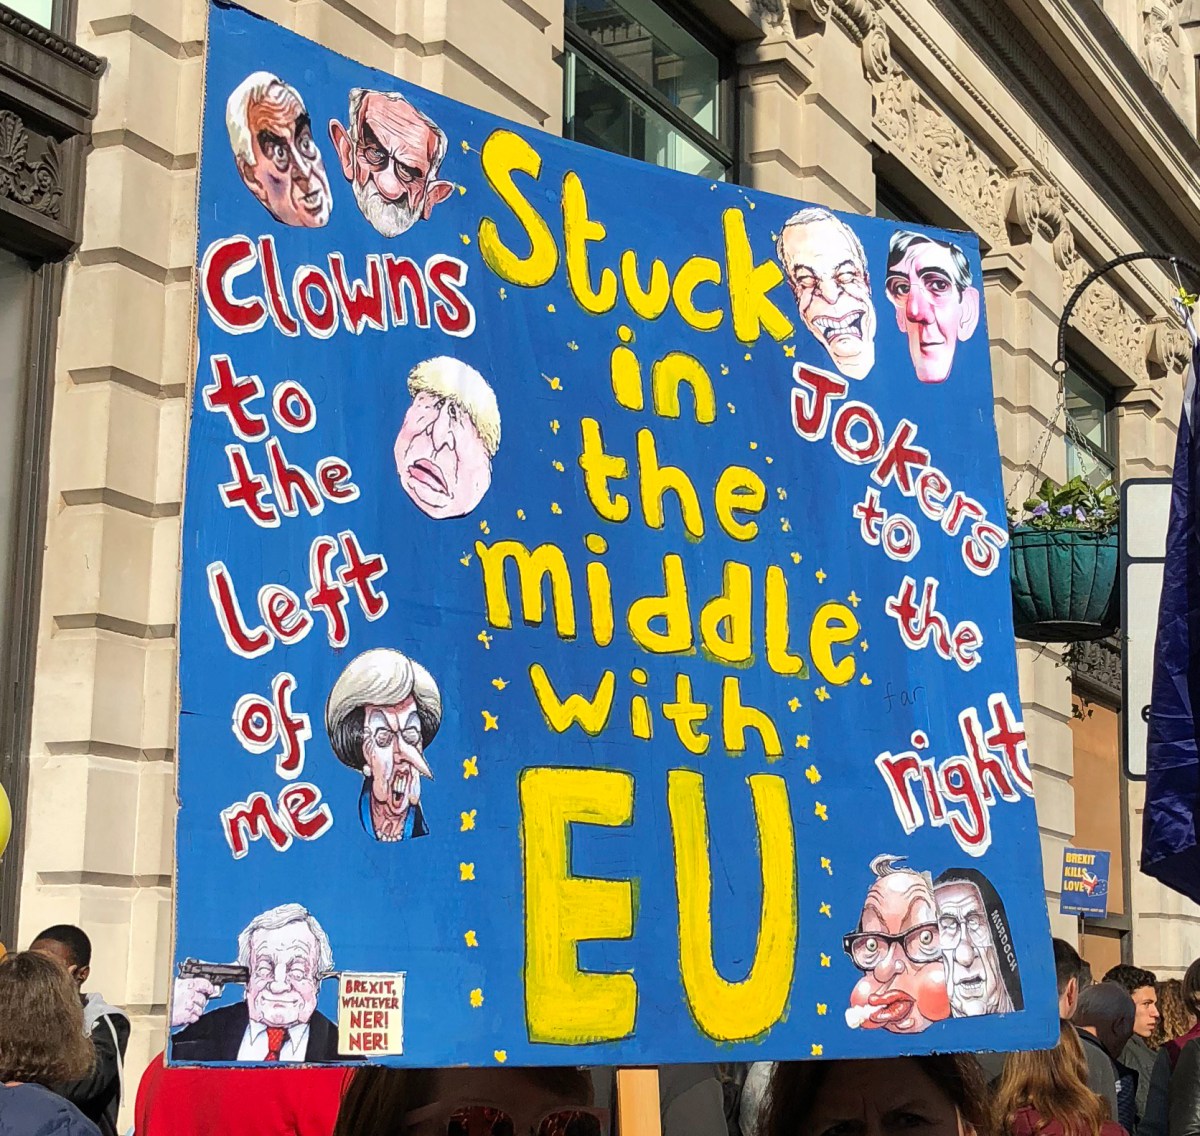 Clowns
to
the
Left
of
me
Stuck
in
the
middle
with
EU
JOKers
to
the
far
right
BREXIT,
WHATEVER
NER!
NER!
MURDOCH
BREXIT
KILLS
LOVE